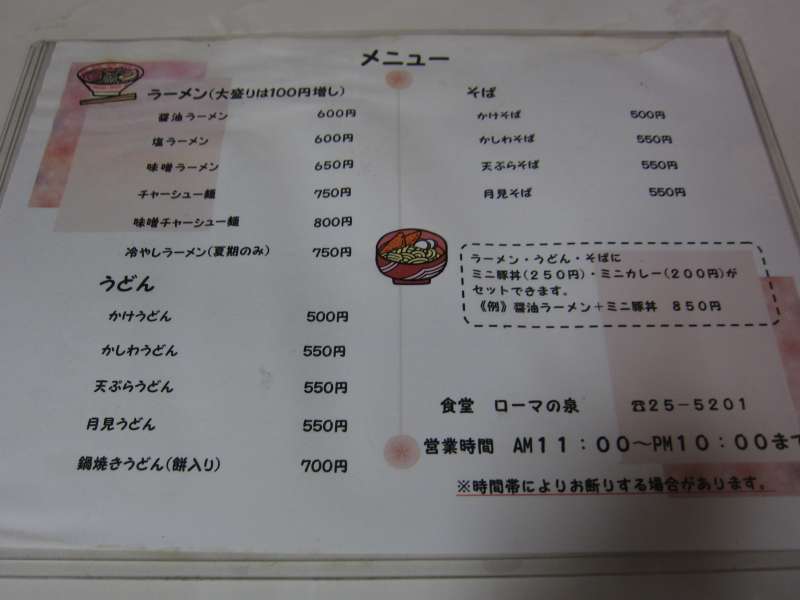 メニュー
ラーメン(大盛りは100円増し)
醤油ラーメン 600円
塩ラーメン 600円
味噌ラーメン 650円
チャーシュー麺 750円
味噌チャーシュー麺 800円
冷やしラーメン(夏期のみ) 750円
うどん
かけうどん 500円
かしわうどん 550円
天ぷらうどん 550円
月見うどん 550円
鍋焼きうどん(餅入り) 700円
そば
かけそば 500円
かしわそば 550円
天ぷらそば 550円
月見そば 550円
ラーメン・うどん・そばに
ミニ豚丼(250円)・ミニカレー(200円)が
セットできます。
《例》醤油ラーメン+ミニ豚丼 850円
食堂 ローマの泉 ☎25-5201
営業時間 AM11:00~PM10:00まで
※時間帯によりお断りする場合があります。